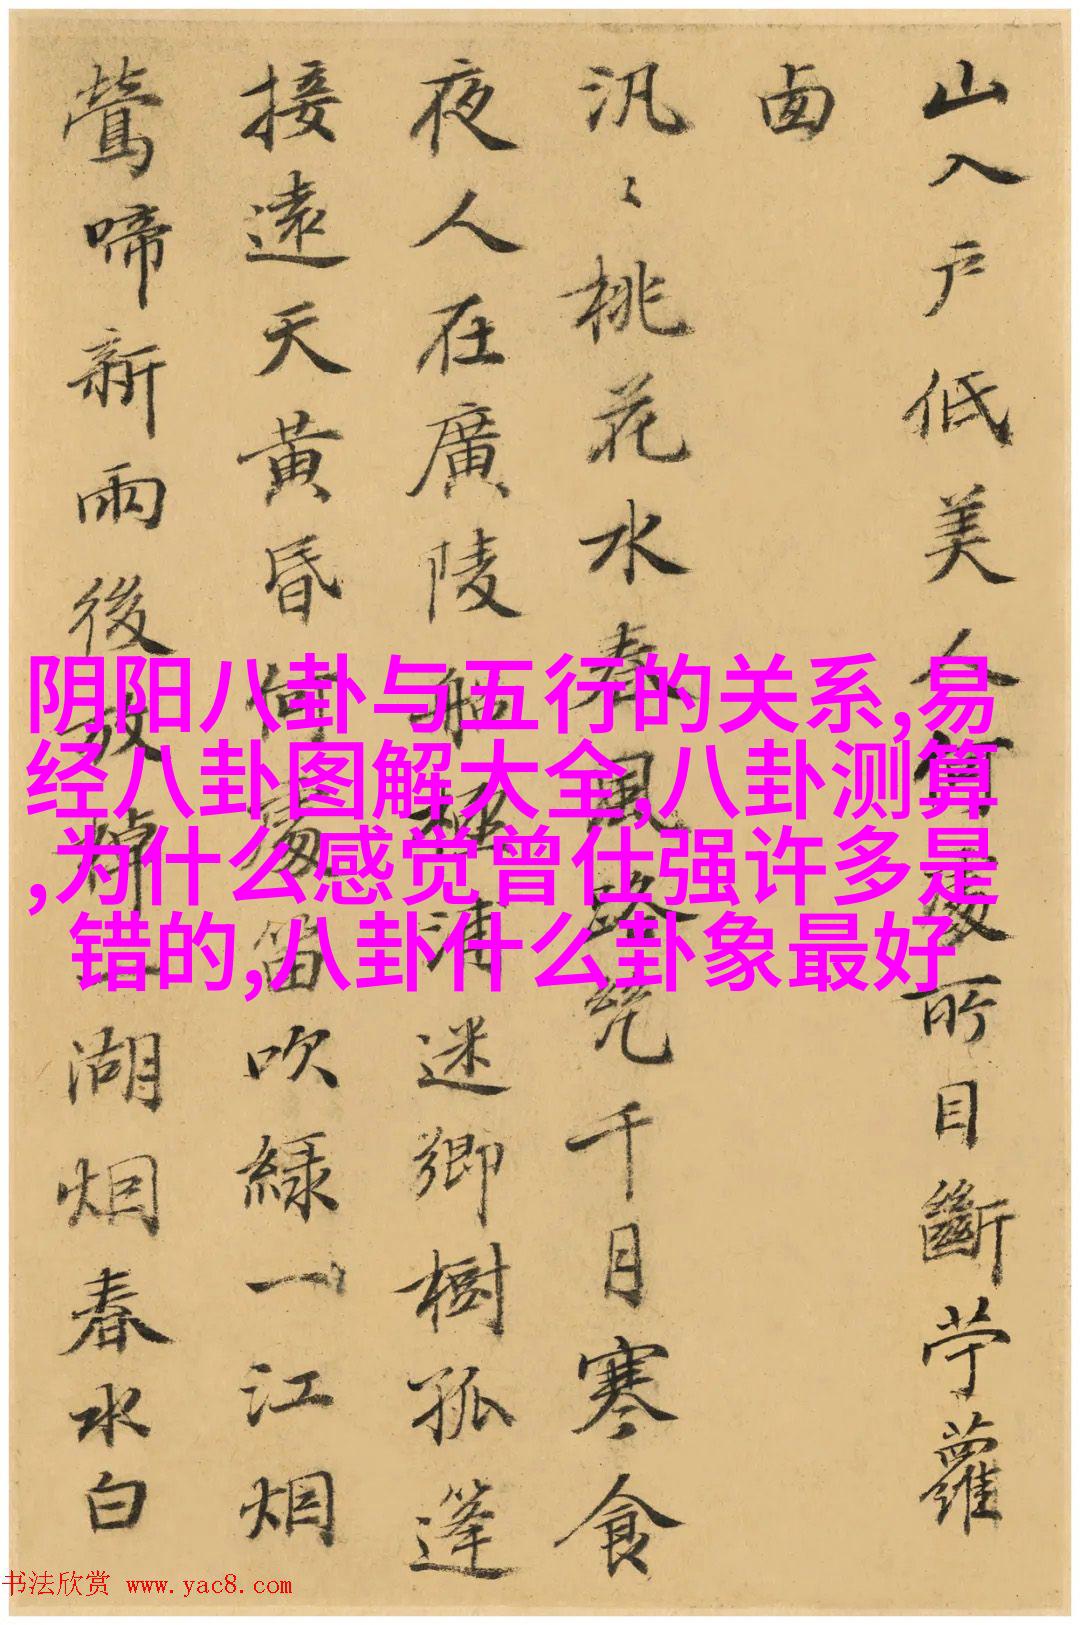 山入戶低美人何處所目斷苧蘿
囪
汎〻桃花水春風路絶千月寒食
夜人在廣陵船極浦迷鄉樹孤篷
接遠天黃昏何處笛吹綠一江烟
鶯啼新雨後放棹湖烟春水白
阴阳八卦与五行的关系,易
经八卦图解大全,八卦测算
,为什么感觉曾仕强许多是
错的,八卦什么卦象最好
书法欣赏 www.yac8.com